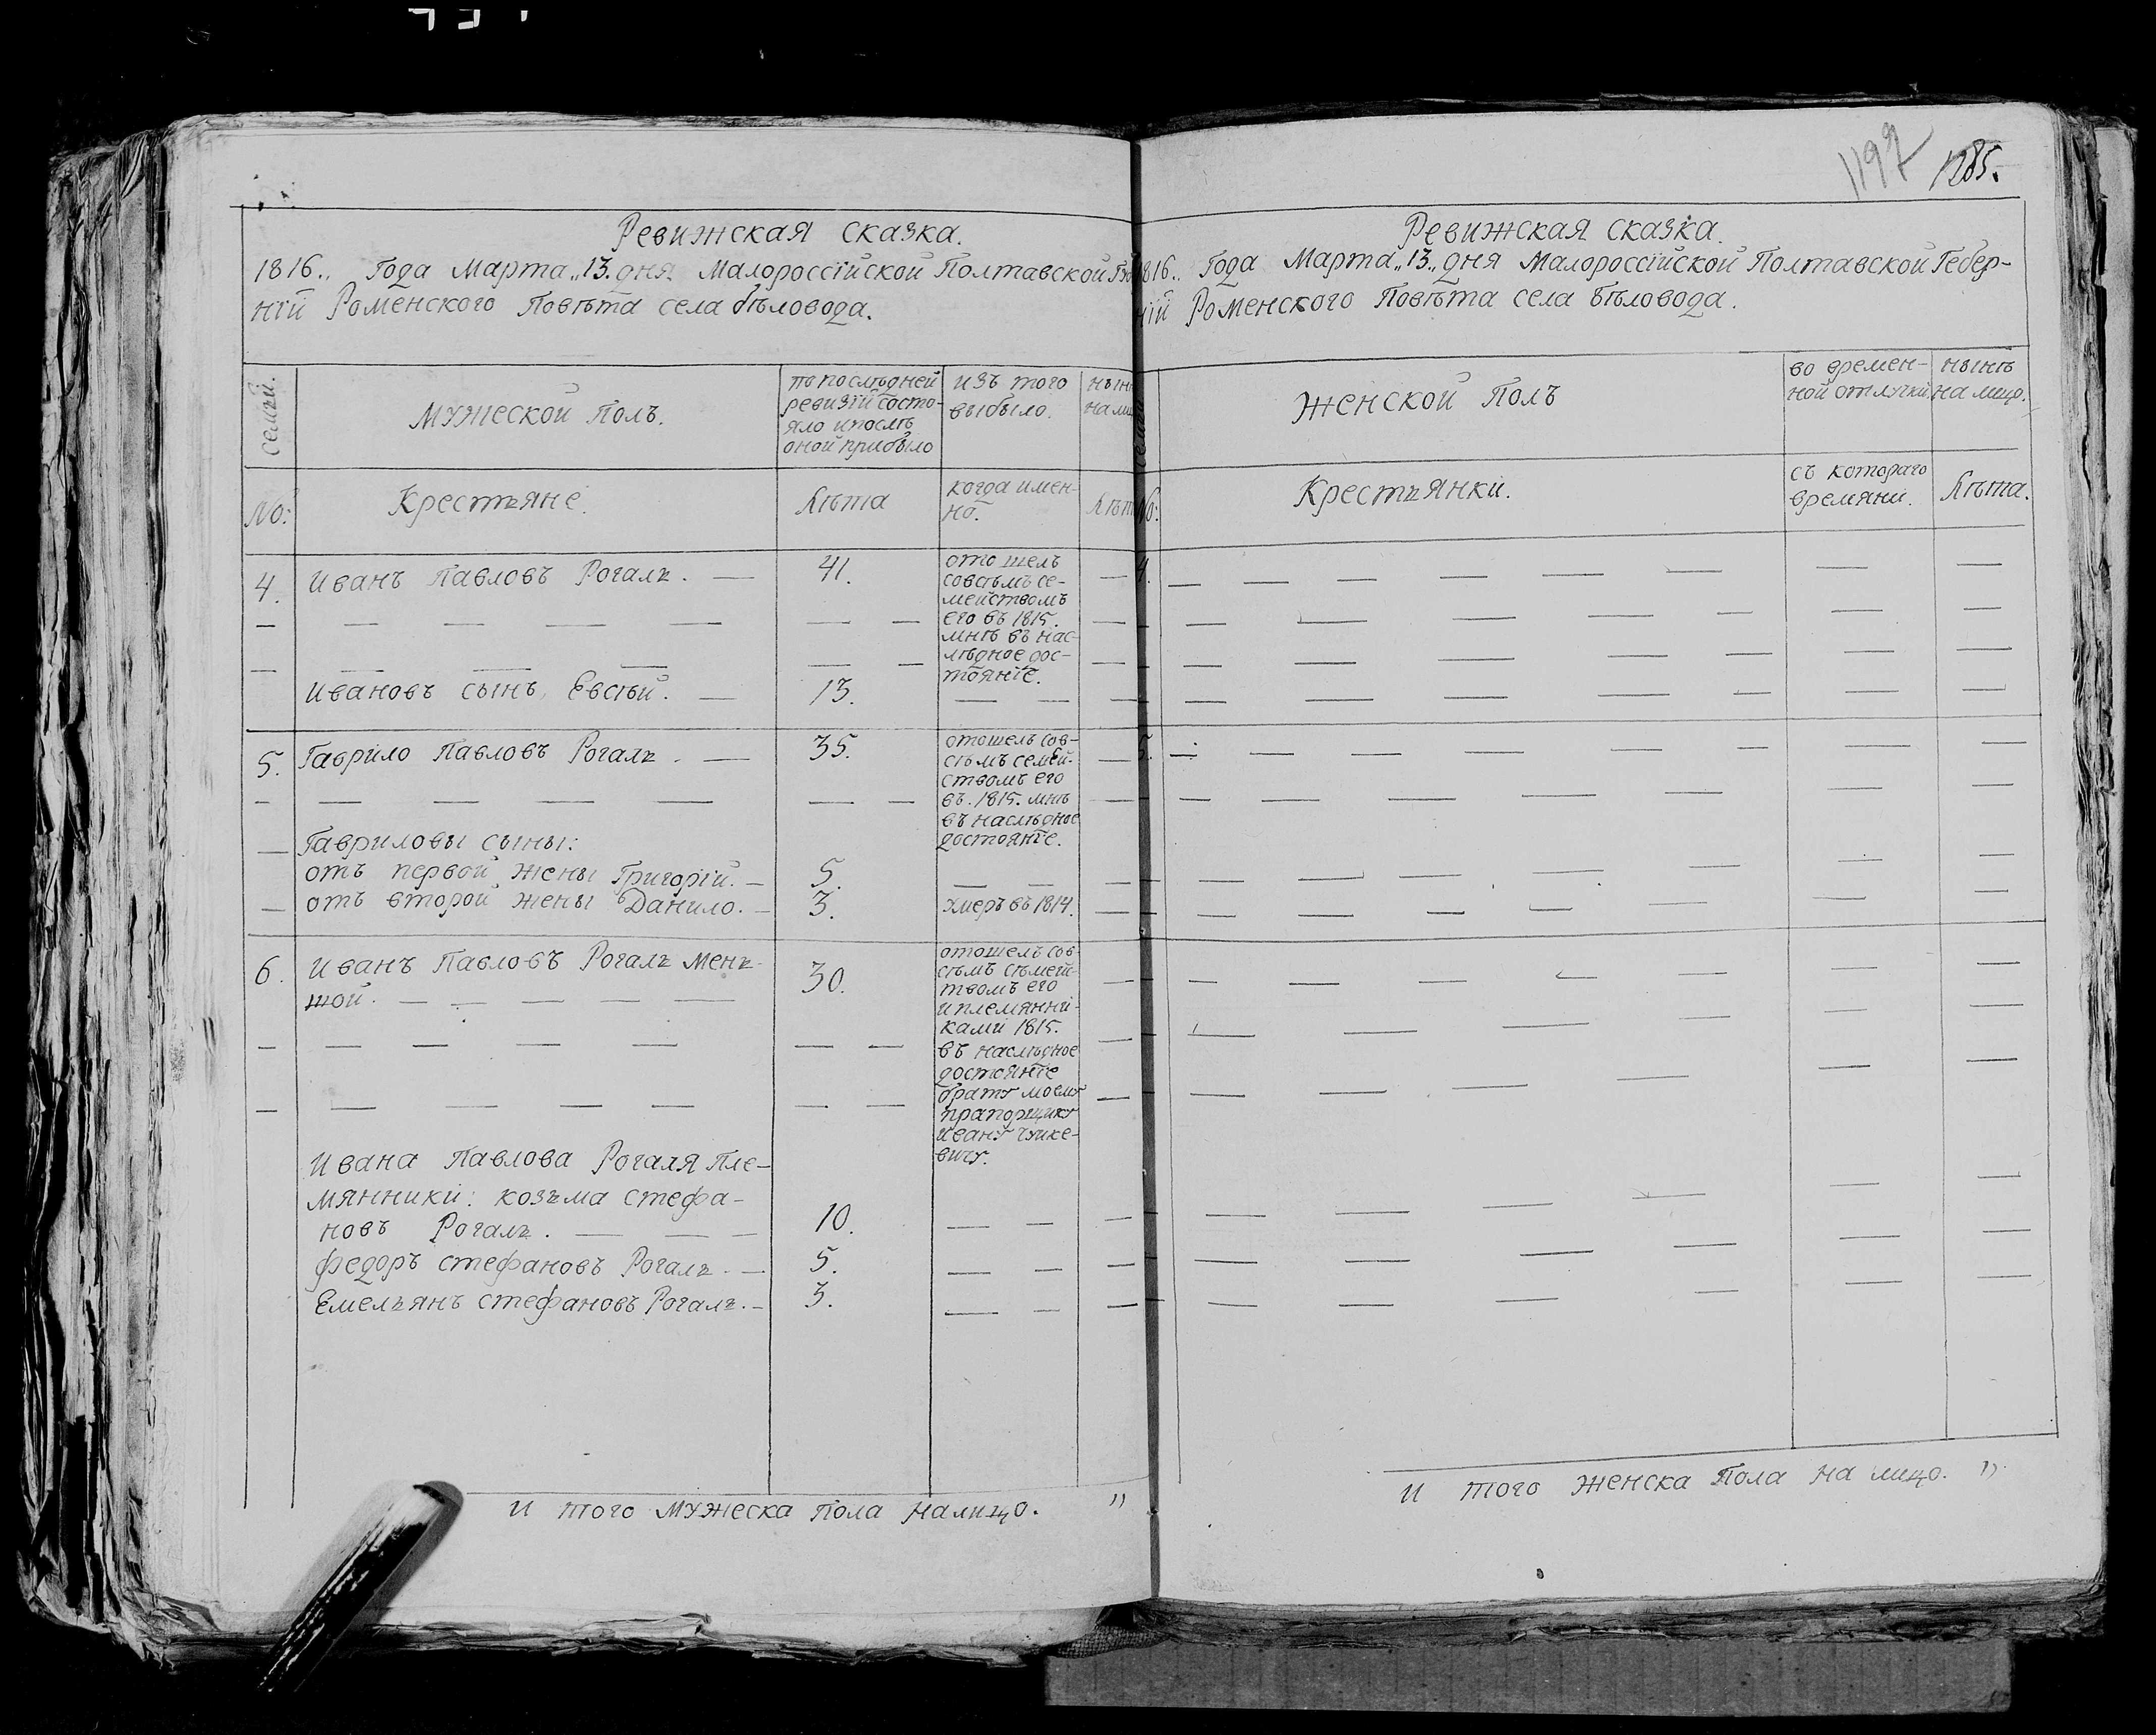 Ревижская сказка.
1816.. Года Марта „13. дня Малороссійской Полтавской
ніи Роменского Повѣта села бѣловода.
семьи.
Мужеской Полъ.
по послѣдней
ревизіи состо-
яло и послѣ
оной прибыло
изъ того
выбыло.
№:
Крестьяне.
Лѣта
когда имен-
но.
4. Иванъ Павловъ Рогаль. — 41.
отошелъ
совсѣмъ се-
мействомъ
его въ 1815.
мнѣ въ нас-
лѣдное дос-
тояніе.
Ивановъ сынъ, Евсѣй. — 13.
5. Гаврило Павловъ Рогаль. — 35.
отошелъ сов-
сѣмъ семей-
ствомъ его
въ. 1815. мнѣ
въ наслѣдное
достояніе.
Гавриловы сыны:
отъ первой жены Григорій. — 5.
отъ второй жены Данило. — 3. умеръ въ 1814.
6. Иванъ Павловъ Рогаль мень-
шой. — 30.
отошелъ сов-
сѣмъ сѣмей-
твомъ его
и племянни-
ками 1815.
въ наслѣдное
достояніе
брату моему
прапорщику
Ивану Чуйке-
вичу.
Ивана Павлова Рогаля Пле-
мянники: козьма стефа-
новъ Рогаль. — 10.
федоръ стефановъ Рогаль. — 5.
Емельянъ стефановъ Рогаль. — 3.
И того мужеска пола налицо. "
1197 1285.
Ревижская сказка.
1816.. Года Марта „13„ дня Малороссійской Полтавской Гебер-
ніи Роменского Повѣта села бѣловода.
Женской Полъ
во времен-
ной отлучки.
нынѣ
на лицо.
№:
Крестьянки.
съ котораго
времяни.
Лѣта.
4.
5.
И того женска Пола на лицо. "